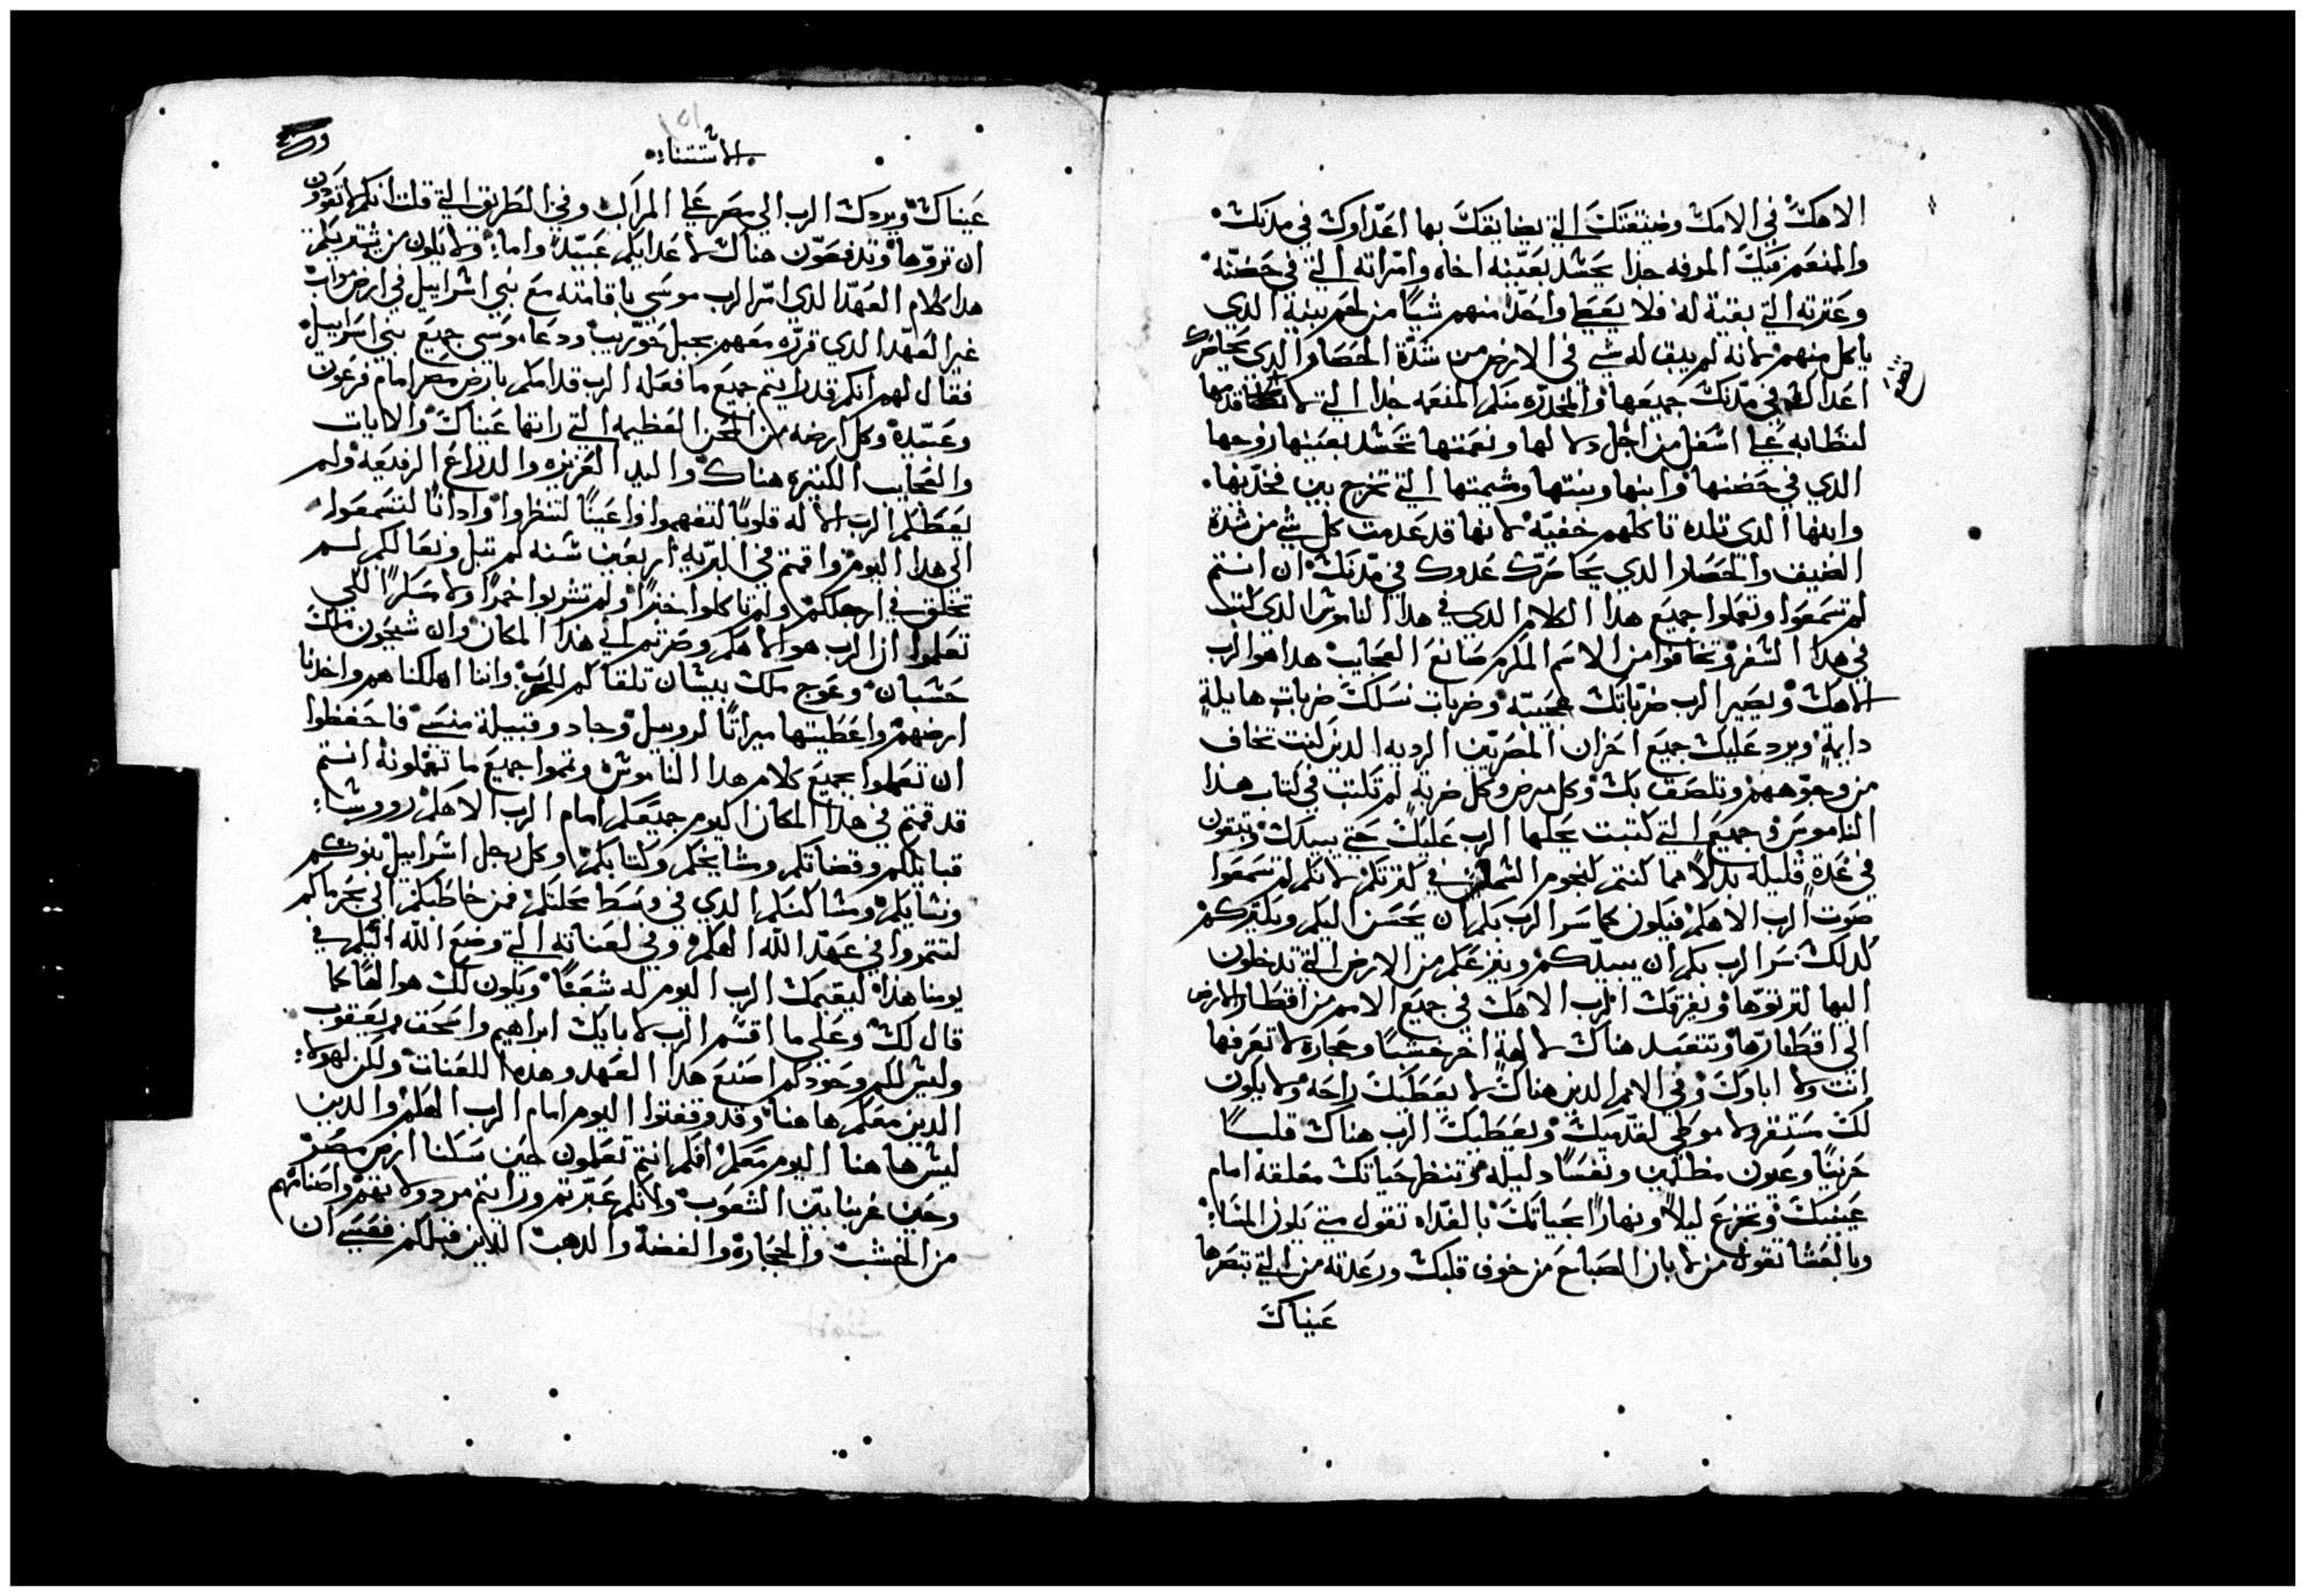 الاهك في الامك وضيقتك التي يضايقك بها اعداوك في مدنك
والمنعم فيك المرفه جدا يحسد بعينه اخاه وامراته التي في حضنه
وعترته التي بقية له فلا يعطي واحدا منهم شيا من لحم بنيه الدي
ياكل منهم لانه لم يبق له شي في الارض من شدة الحصار الدي يحاصرك
اعداك في مدنك جميعها والمخدره منكم المنعمه جدا التي لا قدمها
لتطا به علي اسفل من اجل دلالها ونعمتها تحسد بعينها زوجها
الدي في حضنها وابنها وبنتها ومشيمتها التي تخرج بين فخديها
وابنها الدي تلده تاكلهم خفيه لانها قد عدمت كل شي من شدة
الضيق والحصار الدي يحاصرك عدوك في مدنك ان انتم
لم تسمعوا وتعملوا جميع هدا الكلام الدي في هدا الناموس الدي كتب
في هدا السفر وتخافوا من الاسم المكرم صانع العجايب هدا هو الرب
الاهك ويصير الرب ضرباتك عجيبه وضربات نسلك ضربات هايلة
دايمة ويرد عليك جميع احزان المصريين الرديه الدين كنت تخاف
من وجوههم وتلصق بك وكل مرض وكل ضربه لم تكتب في كتاب هدا
الناموس وجميع التي كتبت يجلها الرب عليك حتي يبيدك وتبقون
في عدة قليله بدلا مما كنتم كنجوم السما في كثرتكم لانكم لم تسمعوا
صوت الرب الاهكم فيكون كما سر الرب بكم ان يحسن اليكم ويكثركم
كدلك سر الرب بكم ان يبيدكم وينزعكم من الارض التي تدخلون
اليها لترثوها ويفرقك الرب الاهك في جميع الامم من اقطار الارض
الي اقطارها وتتعبد هناك لالهة اخر خشبا وحجارة لا تعرفها
انت ولا اباوك وفي الامم الدين هناك لا يعطيك راحه ولا يكون
لك مستقر ولا موطي لقدميك ويعطيك الرب هناك قلبا
حزينا وعيون مظلمين ونفسا دليله وتنظر حياتك معلقه امام
عينيك وتجزع ليلا ونهارا بحياتك بالغداه تقول متي يكون المسا
وبالعشا تقول متي يكون الصباح من خوف قلبك ورعدته من التي تبصرها
عيناك
الاستثنا
عيناك ويردك الرب الي مصر علي المراكب وفي الطريق التي قلت انكم لا تعودون
ان تروها وتدفعون هناك لاعدايكم عبيدا واما ولا يكون من يشتريكم
هدا كلام العهد الدي امر الرب موسي باقامته مع بني اسراييل في ارض مواب
غير العهد الدي قرره معهم بجبل حوريب ودعا موسي جميع بني اسراييل
فقال لهم انكم قد رايتم جميع ما فعله الرب قدامكم بارض مصر امام فرعون
وعبيده وكل ارضه من المحن العظيمه التي راتها عيناك والايات
والعجايب الكثيره هناك واليد العزيزه والدراع الرفيعة ولم
يعطكم الرب الاله قلوبا لتفهموا واعينا لتنظروا وادانا لتسمعوا
الي هدا اليوم واقمتم في البريه اربعين سنه لم تبل ونعالكم لم
تخلق في ارجلكم ولم تاكلوا خبزا ولم تشربوا خمرا ولا مسكرا لكي
تعلموا ان الرب هو الاهكم وصرتم الي هدا المكان وان شيحون ملك
حشبان وعوج ملك بيسان تلقاكم للحرب واننا اهلكناهم واخدنا
ارضهم واعطيتها ميراتا لروبيل وجاد وقبيلة منسي فاحفظوا
ان تعملوا بجميع كلام هدا الناموس وتموا جميع ما تعملونه انتم
قد قمتم في هدا المكان اليوم جميعكم امام الرب الاهكم رووسا
قبايلكم وقضاتكم ومشايخكم وكتابكم وكل رجل اسراييل بنوكم
ونسايكم ومساكنكم الدي في وسط محلتكم فمن حاطبكم الي مجرماكم
لتتمروا في عهد الله الهكم وفي لعناته التي وضع الله اليكم في
يومنا هدا ليقيمك الرب اليوم له شعبا ويكون لك هو الها كما
قال لك وعلي ما اقسم الرب لابايك ابراهيم واسحق ويعقوب
وليس لكم وحودكم اصنع هدا العهد وهده اللعنات ولكن لهولا
الدين معكم هاهنا وقد وقفتوا اليوم امام الرب الهكم والدين
ليس هاهنا اليوم معكم افلم انتم تعلمون حين سكنا ارض مصر
وحين عبرنا بين الشعوب ولانكم عبرتم ورايتم مردولاتهم واصنامهم
من الخشب والحجارة والفضة والدهب اللدين قبلكم فعسي ان